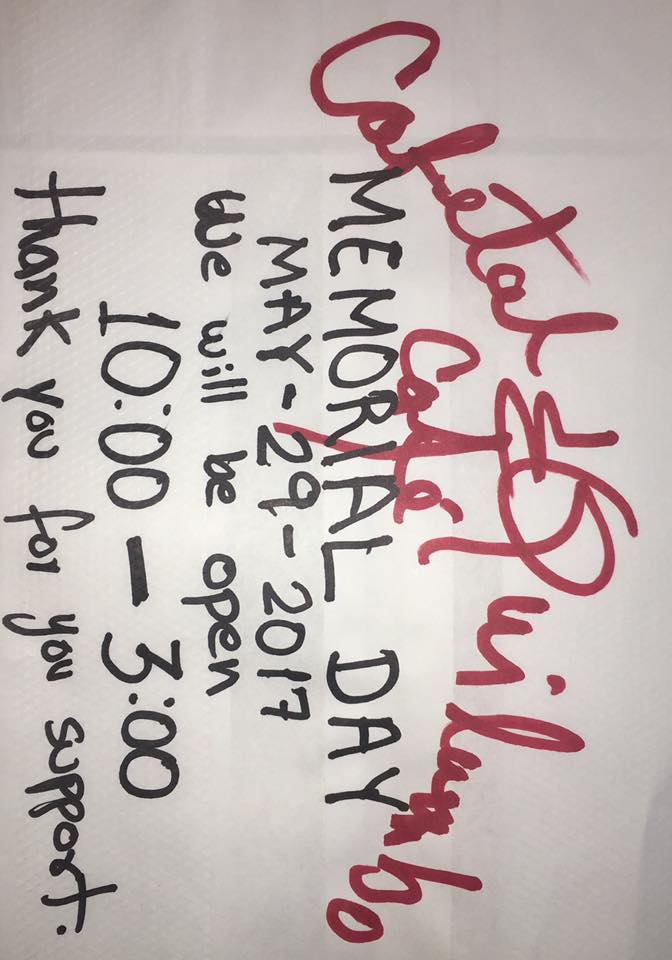 Cafetal Quilombo
Café
MEMORIAL DAY
MAY-29-2017
We will be open
10:00 - 3:00
Thank you for you support.